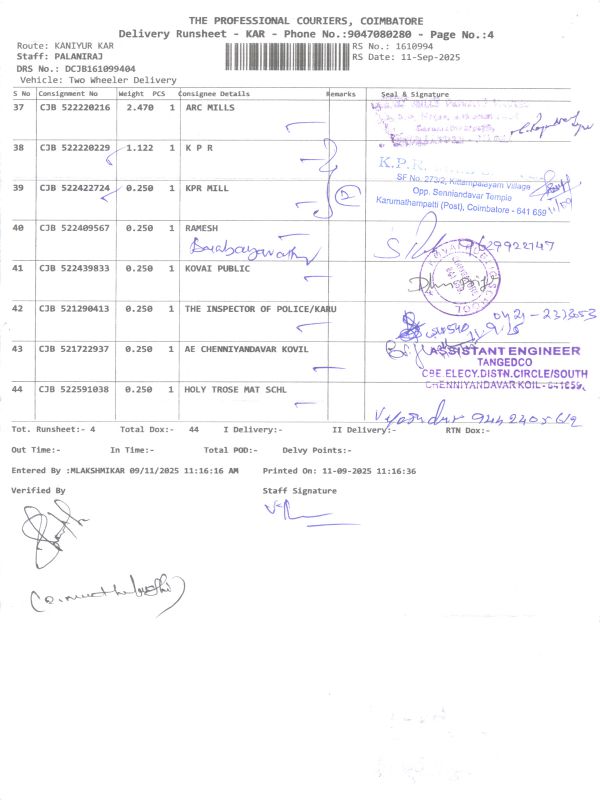 THE PROFESSIONAL COURIERS, COIMBATORE
Delivery Runsheet - KAR - Phone No.:9047080280 - Page No.:4
Route: KANIYUR KAR RS No.: 1610994
Staff: PALANIRAJ RS Date: 11-Sep-2025
DRS No.: DCJB161099404
Vehicle: Two Wheeler Delivery
S No Consignment No Weight PCS Consignee Details Remarks Seal & Signature
37 CJB 522220216 2.470 1 ARC MILLS
38 CJB 522220229 1.122 1 K P R
K.P.R.
SF No. 273/2, Kittampalayam Village
39 CJB 522422724 0.250 1 KPR MILL
Opp. Senniandavar Temple
Karumathampatti (Post), Coimbatore - 641 659
40 CJB 522409567 0.250 1 RAMESH
41 CJB 522439833 0.250 1 KOVAI PUBLIC
42 CJB 521290413 0.250 1 THE INSPECTOR OF POLICE/KARU
0421-2333053
43 CJB 521722937 0.250 1 AE CHENNIYANDAVAR KOVIL
ASSISTANT ENGINEER
TANGEDCO
CBE.ELECY.DISTN.CIRCLE/SOUTH
CHENNIYANDAVARKOIL - 641659.
44 CJB 522591038 0.250 1 HOLY TROSE MAT SCHL
Tot. Runsheet:- 4 Total Dox:- 44 I Delivery:- II Delivery:- RTN Dox:-
Out Time:- In Time:- Total POD:- Delvy Points:-
Entered By :MLAKSHMIKAR 09/11/2025 11:16:16 AM Printed On: 11-09-2025 11:16:36
Verified By Staff Signature